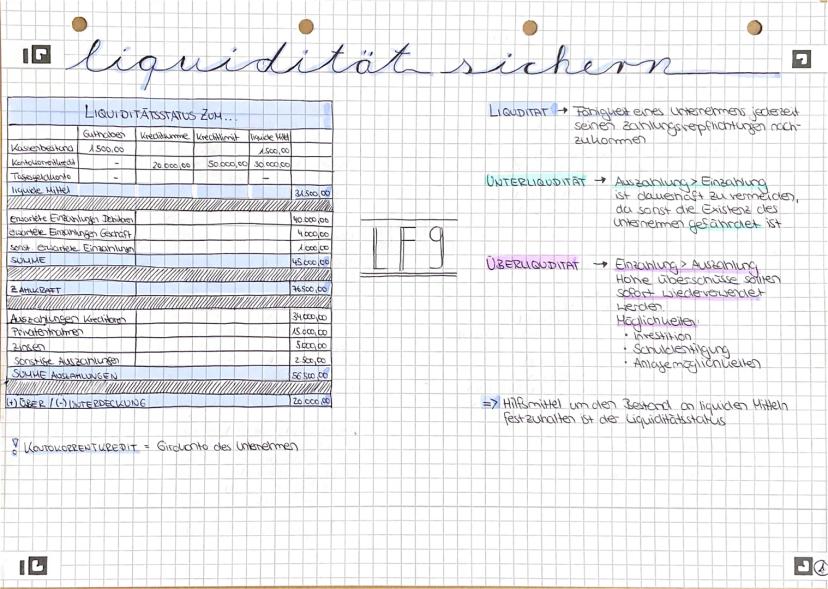 liquidität sichern
LIQUIDITÄTSSTATUS ZUM...
Guthaben Kreditsumme Kreditlimit liquide Mittel
Kassenbestand 1500,00 1500,00
Kontokorrentkredit - 20.000,00 50.000,00 30.000,00
Tagesgeldkonto - -
liquide Mittel 31.500,00
erwartete Einzahlungen Debitoren 40.000,00
erwartete Einzahlungen Geschäft 4.000,00
sonst erwartete Einzahlungen 1.000,00
SUMME 45.000,00
ZAHLKRAFT 76500,00
Auszahlungen Kreditoren 34.000,00
Privatentnahmen 15.000,00
Zinsen 5.000,00
sonstige Auszahlungen 2.500,00
SUMME AUSZAHLUNGEN 56500,00
(+) ÜBER / (-) UNTERDECKUNG 20.000,00
! KONTOKORRENTKREDIT = Girokonto des Unternehmen
LF9
LIQUDITÄT → Fähigkeit eines Unternehmens jederzeit
seinen Zahlungsverpflichtungen nach-
zukommen
UNTERLIQUDITÄT → Auszahlung > Einzahlung
ist dauerhaft zu vermeiden,
da sonst die Existenz des
Unternehmen gefährdet ist
ÜBERLIQUDITÄT → Einzahlung > Auszahlung
Hohe Überschüsse sollten
sofort wiederverwendet
werden.
Möglichkeiten
· Investition
· Schuldentilgung
· Anlagemöglichkeiten
=> Hilfsmittel um den Bestand an liquiden Mitteln
festzuhalten ist der Liquiditätsstatus